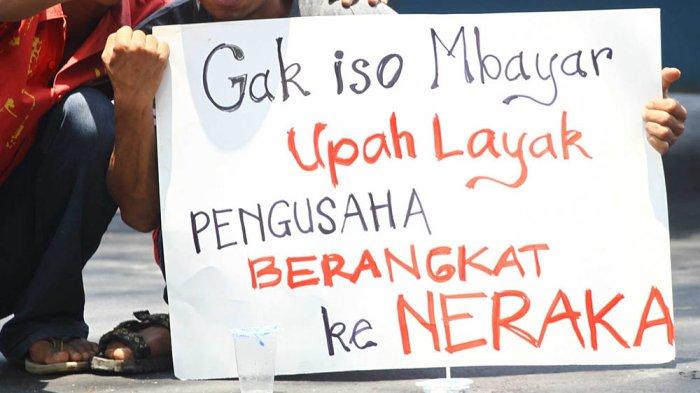 Gak iso Mbayar
Upah Layak
PENGUSAHA
BERANGKAT
ke NERAKA